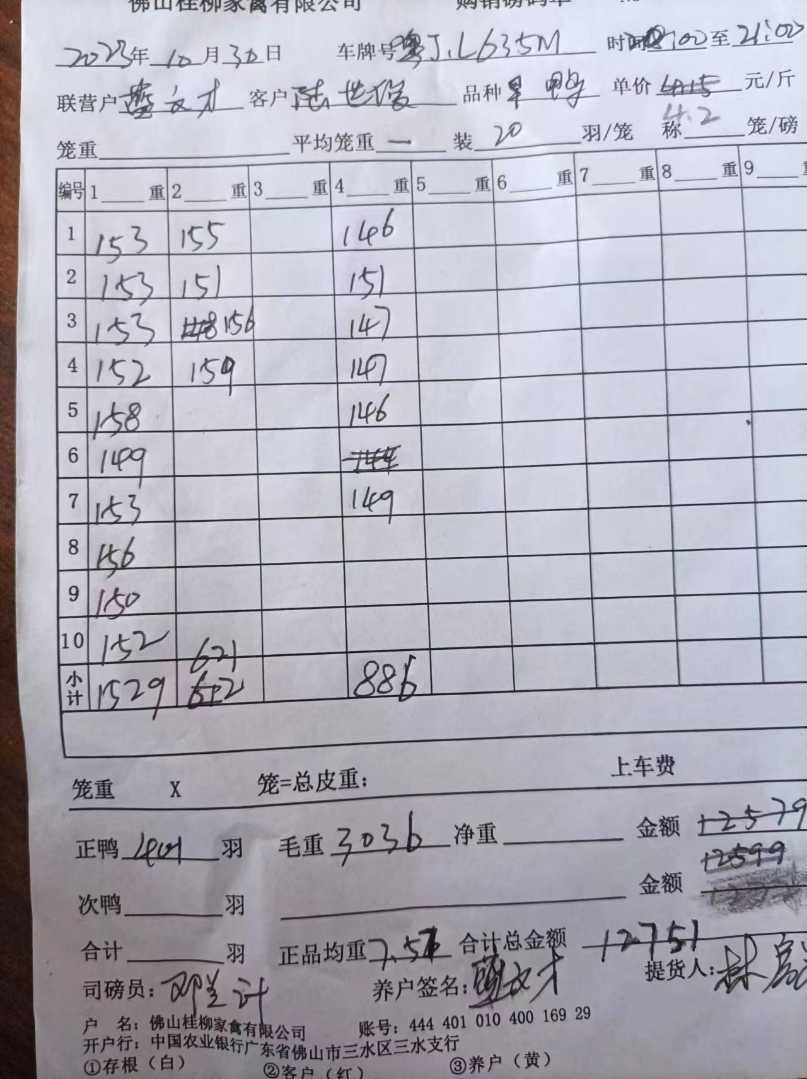 佛山桂柳家禽有限公司 购销磅码单
2023年10月30日 车牌号粤J.L635M 时间 :00至21:00
联营户 文才 客户陆世 品种 鸭 单价4.2元/斤
笼重 平均笼重 一 装 20 羽/笼 称 笼/磅
编号 1 重 2 重 3 重 4 重 5 重 6 重 7 重 8 重 9
1 153 155 146
2 153 151 151
3 153 156 147
4 152 159 147
5 158 146
6 149
7 153 149
8 156
9 150
10 152
小计 1529 621 886
笼重 X 笼=总皮重: 上车费
正鸭 401 羽 毛重 3036 净重 金额
次鸭 羽 金额
合计 羽 正品均重 7.57 合计总金额 12751
司磅员: 养户签名: 文才 提货人: 林
户 名: 佛山桂柳家禽有限公司 账号: 444 401 010 400 169 29
开户行: 中国农业银行广东省佛山市三水区三水支行
①存根（白） ②客户（红） ③养户（黄）